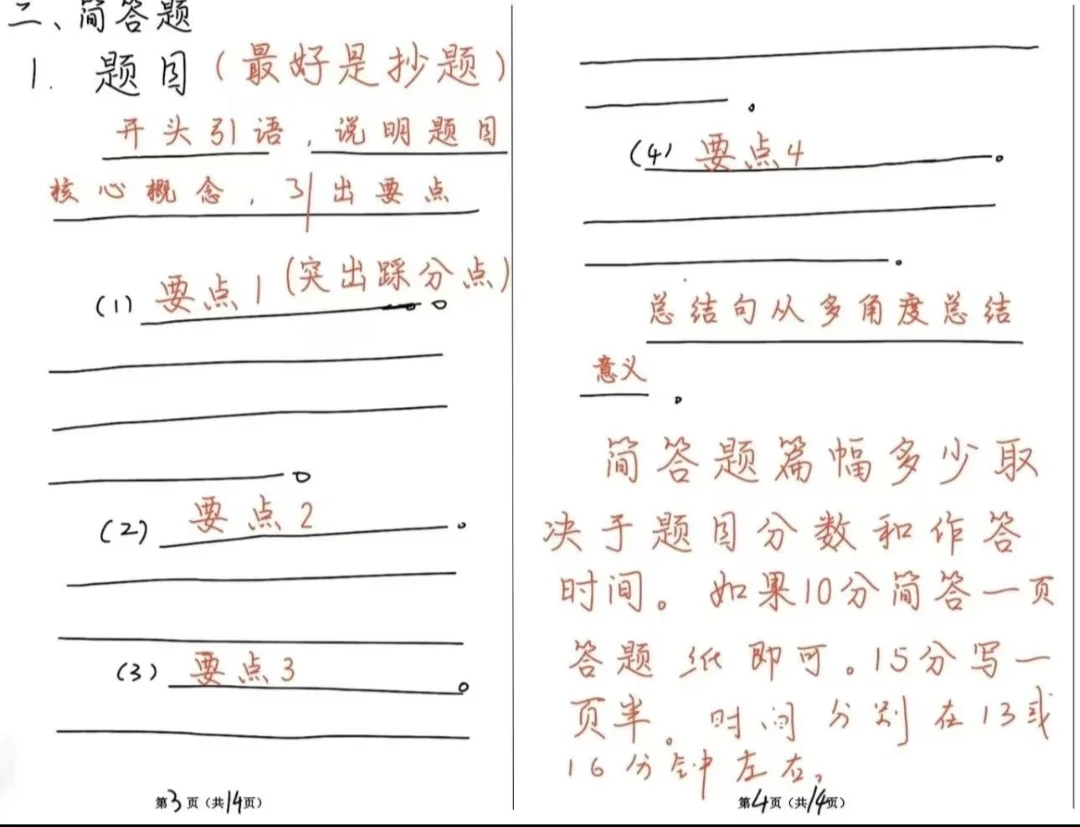 二、简答题
1. 题目(最好是抄题)
开头引语,说明题目
核心概念,引出要点
(1) 要点1(突出踩分点)。
。
(2) 要点2。
(3) 要点3。
第3页(共14页)
。
(4) 要点4。
。
总结句从多角度总结
意义。
简答题篇幅多少取
决于题目分数和作答
时间。如果10分简答一页
答题纸即可。15分写一
页半。时间分别在13或
16分钟左右。
第4页(共14页)